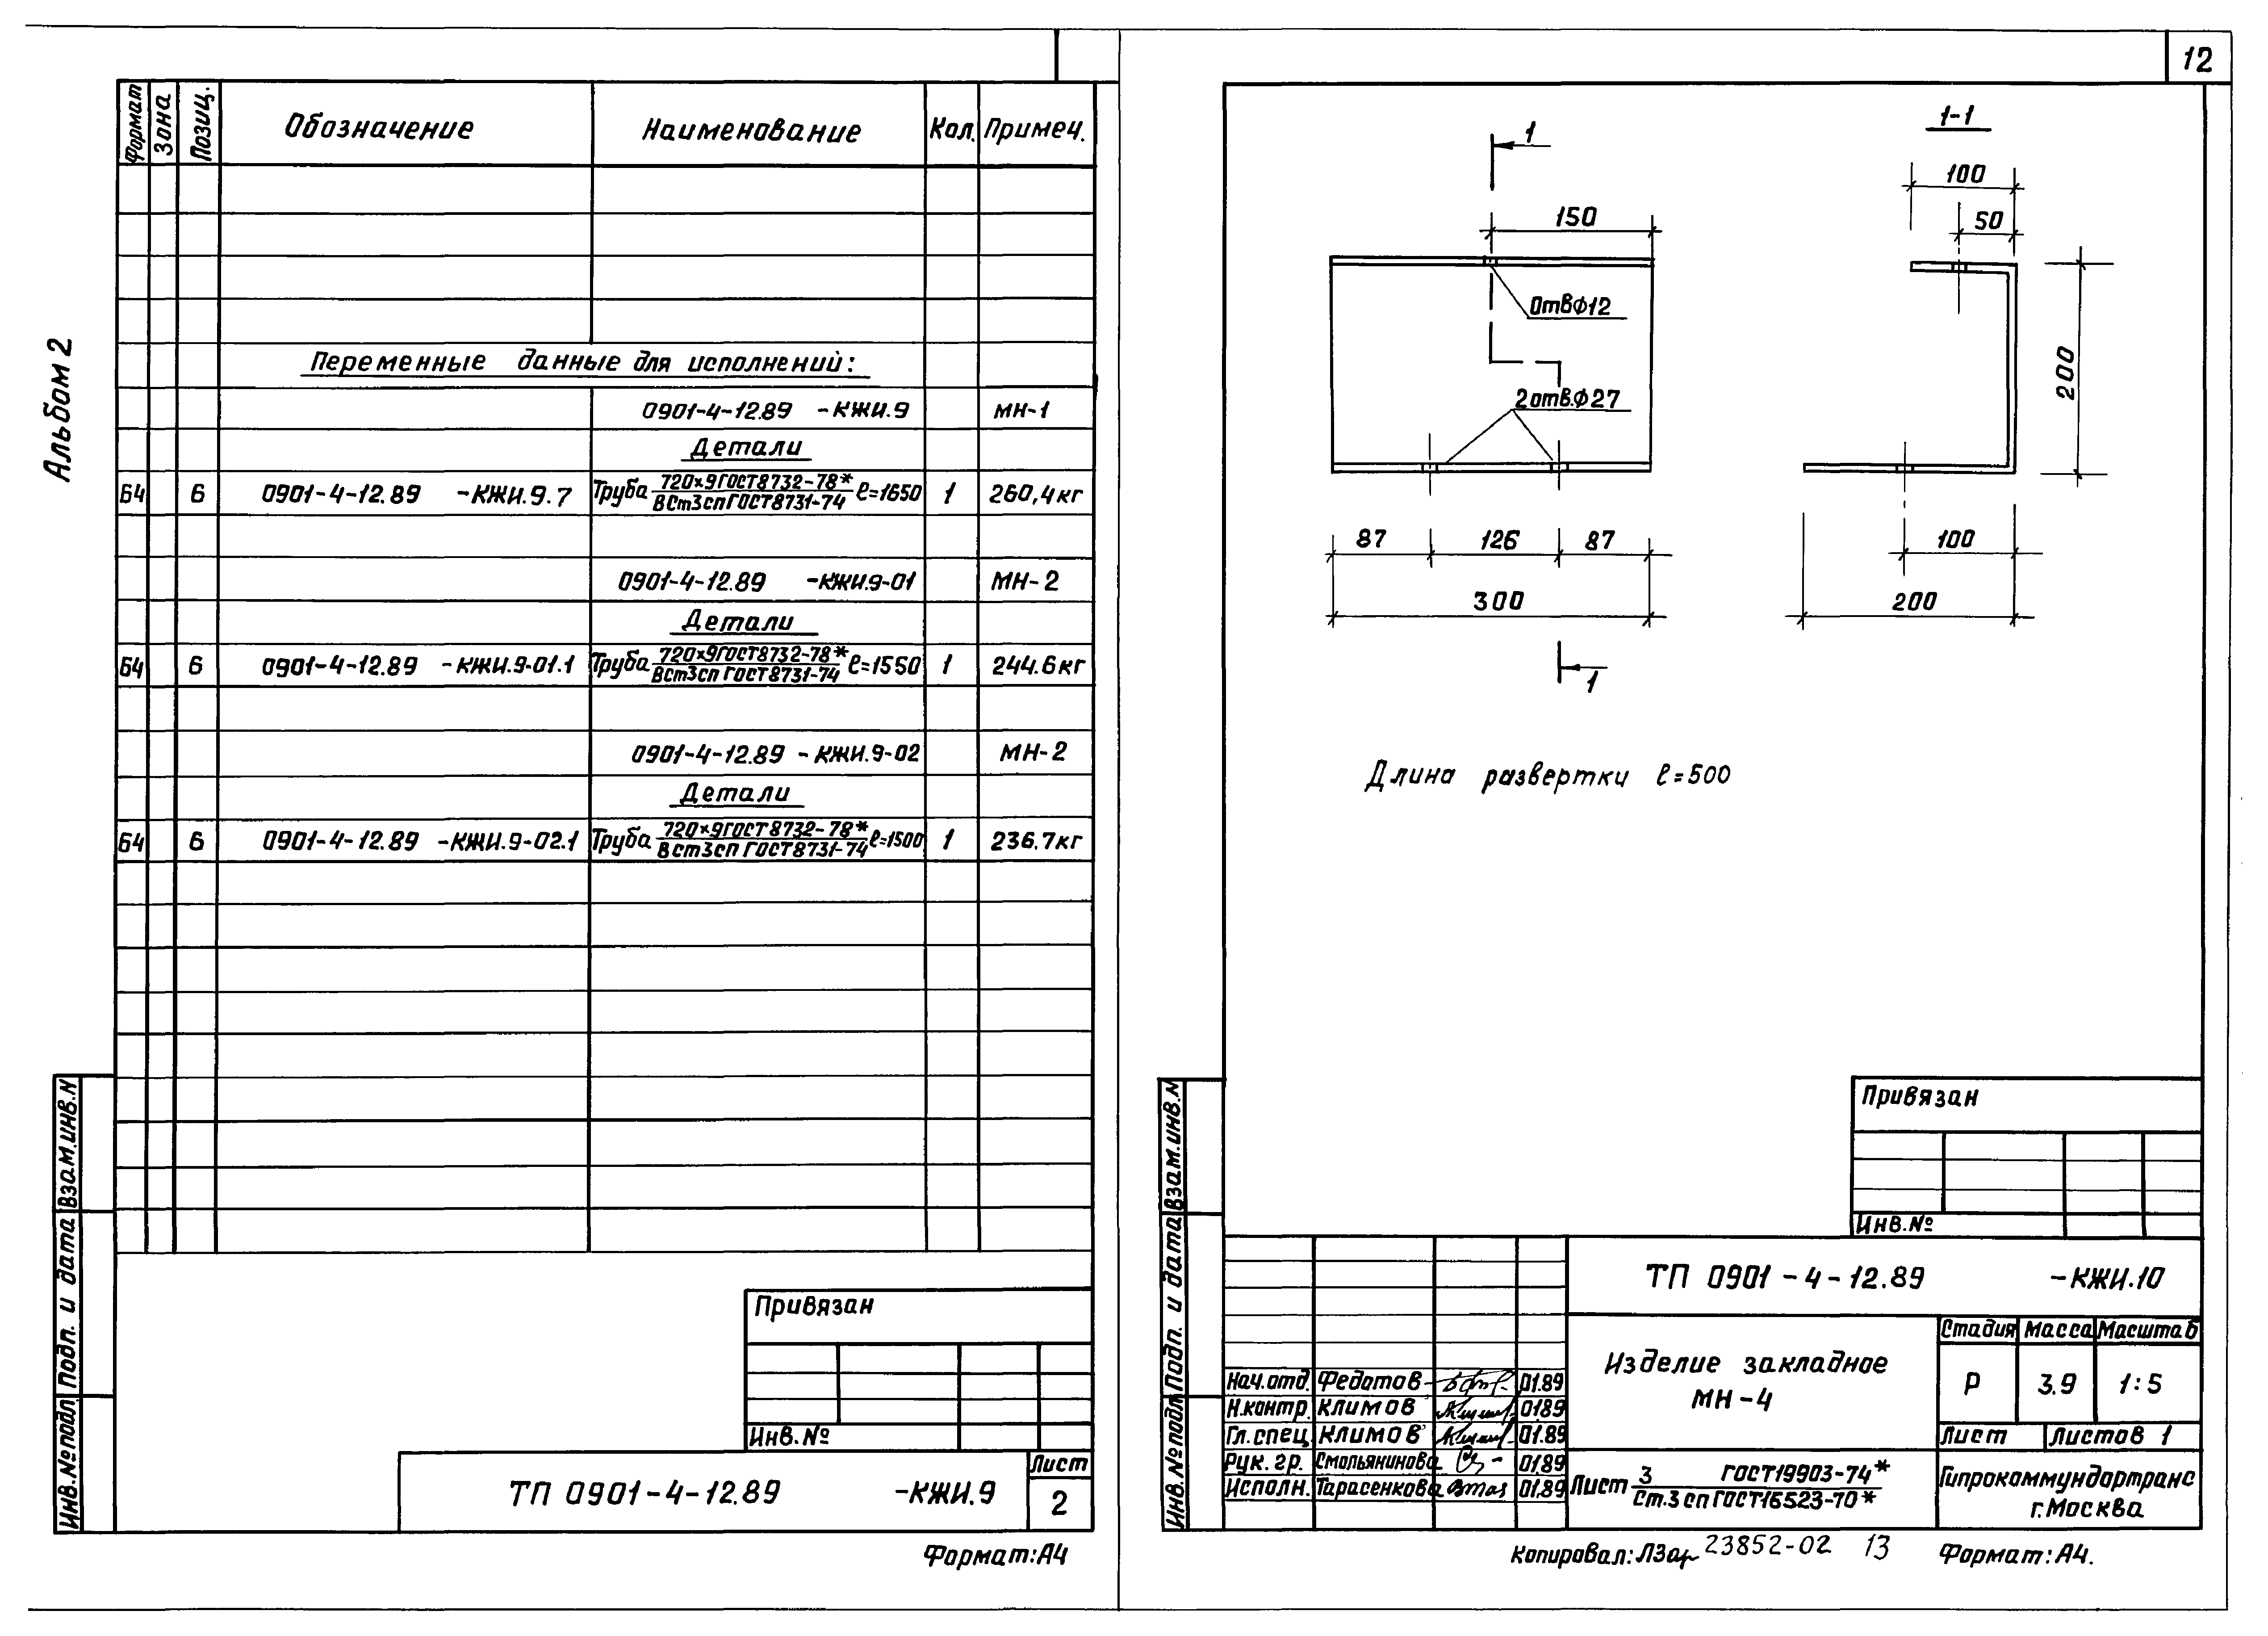 Альбом 2
Формат Зона Позиц. Обозначение Наименование Кол. Примеч.
Переменные данные для исполнений:
0901-4-12.89 -КЖИ.9 МН-1
Детали
Б4 6 0901-4-12.89 -КЖИ.9.7 Труба 720×9ГОСТ8732-78* ℓ=1650 1 260,4кг
ВСт3спГОСТ8731-74
0901-4-12.89 -КЖИ.9-01 МН-2
Детали
Б4 6 0901-4-12.89 -КЖИ.9-01.1 Труба 720×9ГОСТ8732-78* ℓ=1550 1 244.6кг
ВСт3сп ГОСТ8731-74
0901-4-12.89 -КЖИ.9-02 МН-2
Детали
Б4 6 0901-4-12.89 -КЖИ.9-02.1 Труба 720×9ГОСТ8732-78* ℓ=1500 1 236.7кг
ВСт3сп ГОСТ8731-74
Взам.инв.N
Подп. и дата
Инв.№подл.
Привязан
Инв.№
ТП 0901-4-12.89 -КЖИ.9
Лист
2
Формат:А4
12
1
1-1
100
50
150
Отвф12
200
2отв.ф27
87 126 87
100
300
200
1
Длина развертки ℓ=500
Взам.инв.N
Подп. и дата
Инв.№подл.
Привязан
Инв.№
ТП 0901-4-12.89 -КЖИ.10
Изделие закладное
МН-4
Стадия Масса Масштаб
Р 3.9 1:5
Лист Листов 1
Нач.отд. Федотов 01.89
Н.контр. Климов 01.89
Гл.спец. Климов 01.89
Рук.гр. Смольянинова 01.89
Исполн. Тарасенкова 01.89
Лист 3 ГОСТ19903-74*
Ст.3 сп ГОСТ16523-70*
Гипрокоммундортранс
г.Москва
Копировал: 23852-02 13 Формат:А4.